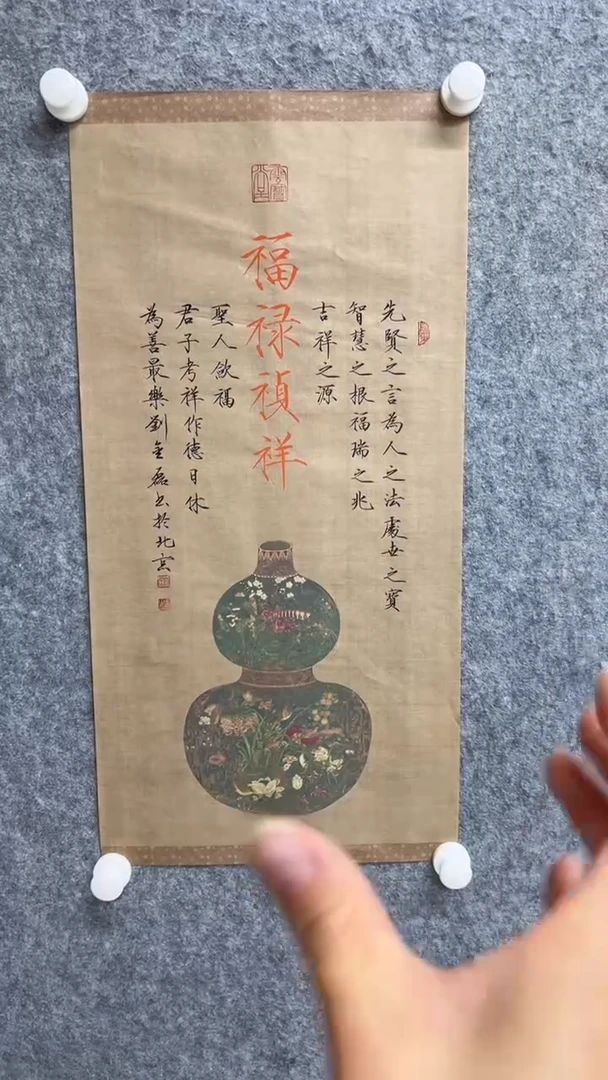 福禄禎祥
先賢之言為人之法處世之寳
智慧之根福瑞之兆
吉祥之源
聖人歛福
君子考祥作德日休
為善最樂劉金磊书於北京